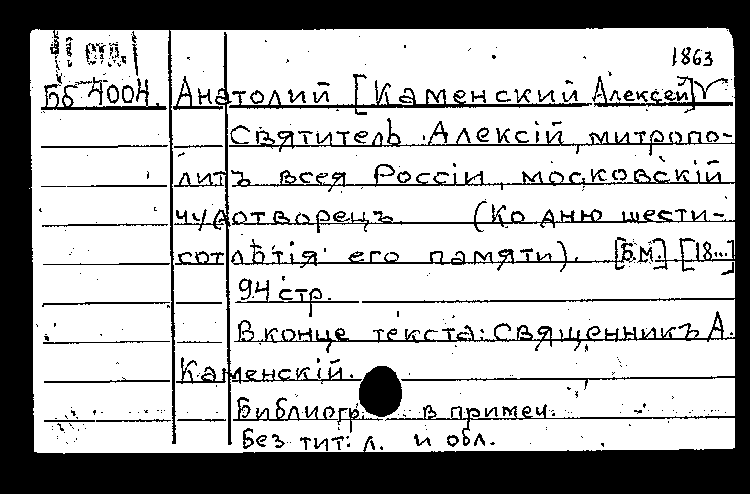 1 отд.
1863
Бб 4004. Анатолий [Каменский Алексей]
Святитель Алексiй, митропо-
литъ всея Россiи, московскiй
чудотворецъ (Ко дню шести-
сотлѣтiя его памяти). [Б.М.] [18...]
94 стр.
В конце текста: Священникъ А.
Каменскiй.
Библиогр. в примеч.
Без тит. л. и обл.